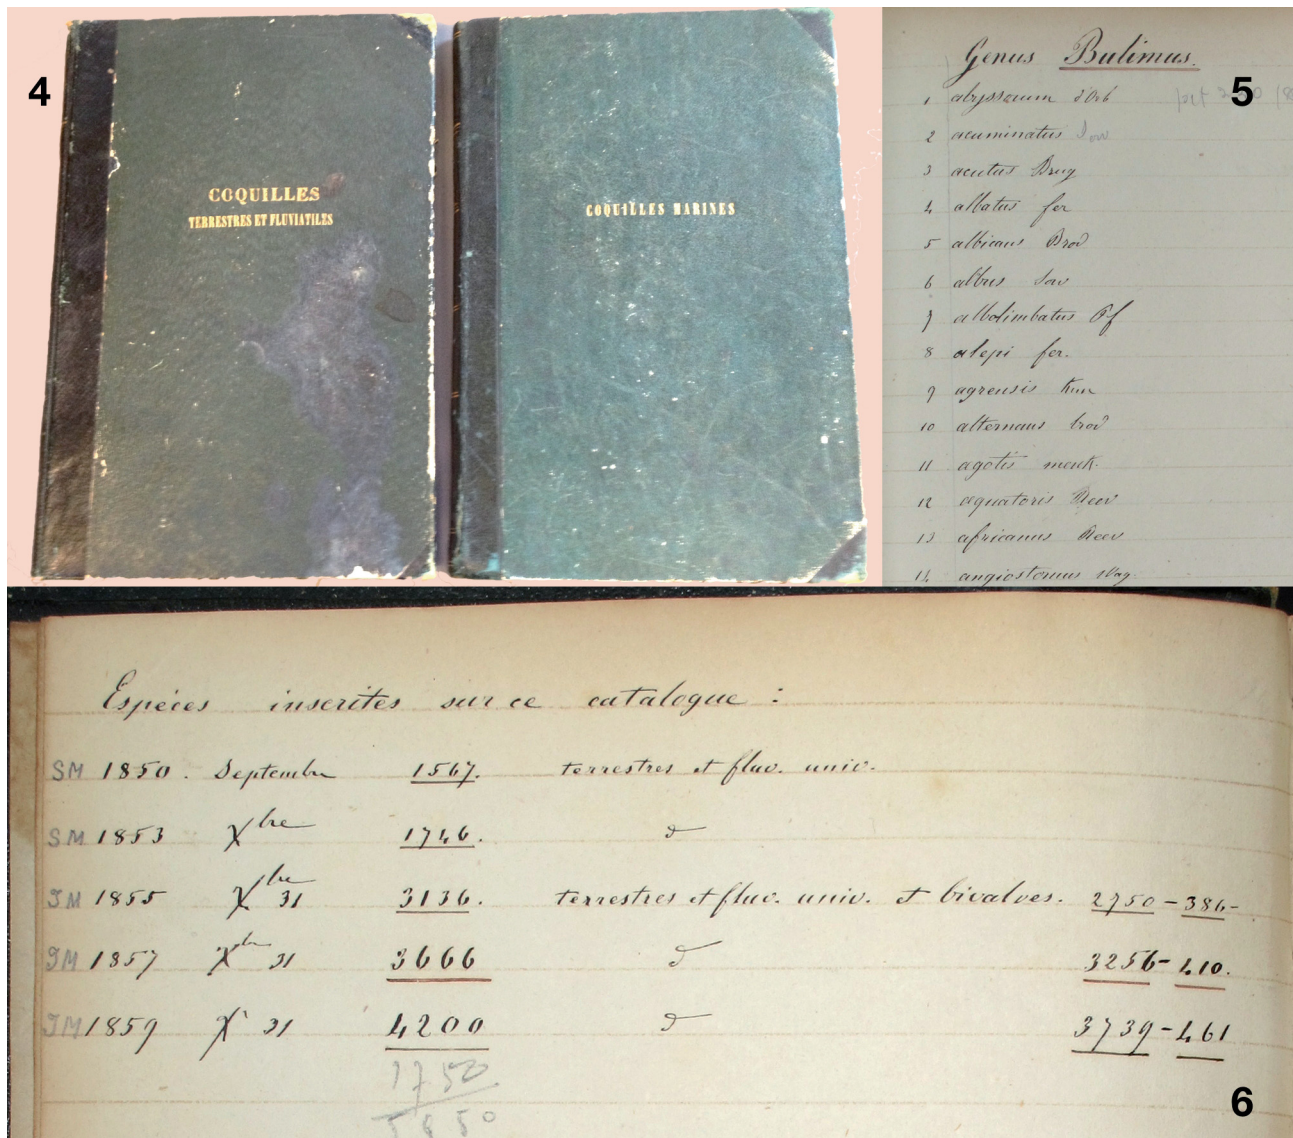 4
COQUILLES
TERRESTRES ET FLUVIATILES
COQUILLES MARINES
5
Genus Bulimus.
1 abyssorum d'Orb
2 acuminatus Sow
3 acutus Brug
4 albatus fer
5 albicans Brod
6 albus Sow
7 albolimbatus Pf
8 alepi fer.
9 agrensis Kur
10 alternans brod
11 agotis menk.
12 æquatoris Reev
13 africanus Reev
14 angiostomus Wag.
Espéces inscrites sur ce catalogue :
SM 1850. Septembre 1567. terrestres et fluv. univ.
SM 1853 Xbre 1746. d
JM 1855 Xbre 31 3136. terrestres et fluv. univ. et bivalves. 2750-386-
JM 1857 Xbre 31 3666 d 3256-410.
JM 1859 X 31 4200 d 3739-461
1750
6